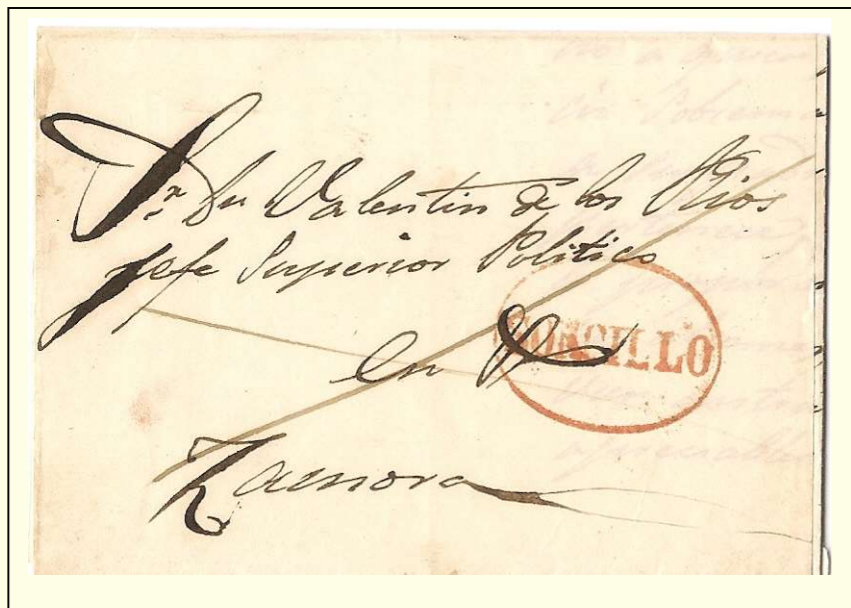 Sr. Dn Valentin de los Rios
Jefe Superior Politico
SONCILLO
en
Zamora